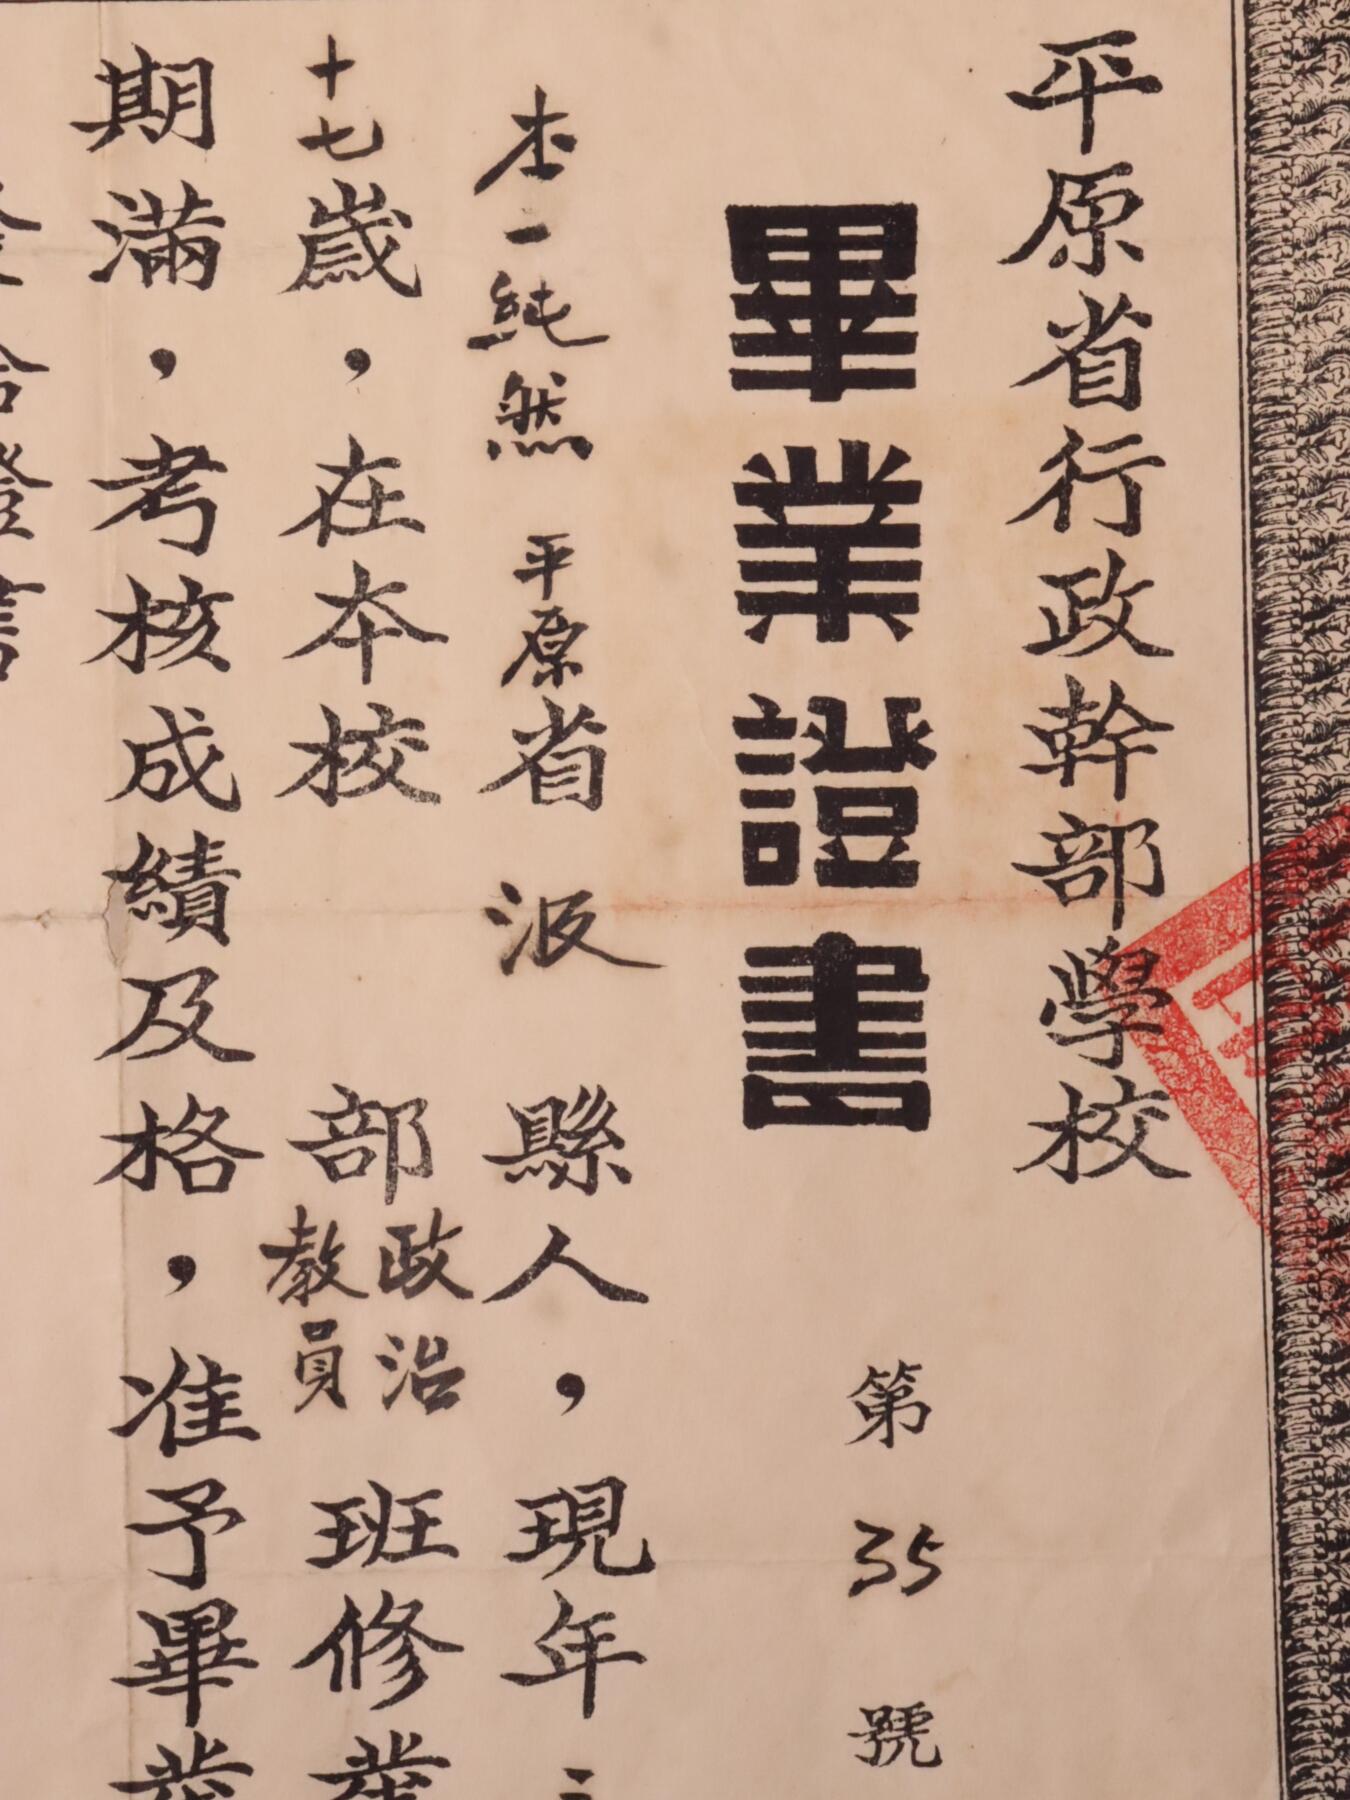 平原省行政幹部學校
畢業證書
第35號
一純然平原省汲縣人，現年
十七歲，在本校部政治教員班修業
期滿，考核成績及格，准予畢業
給證書